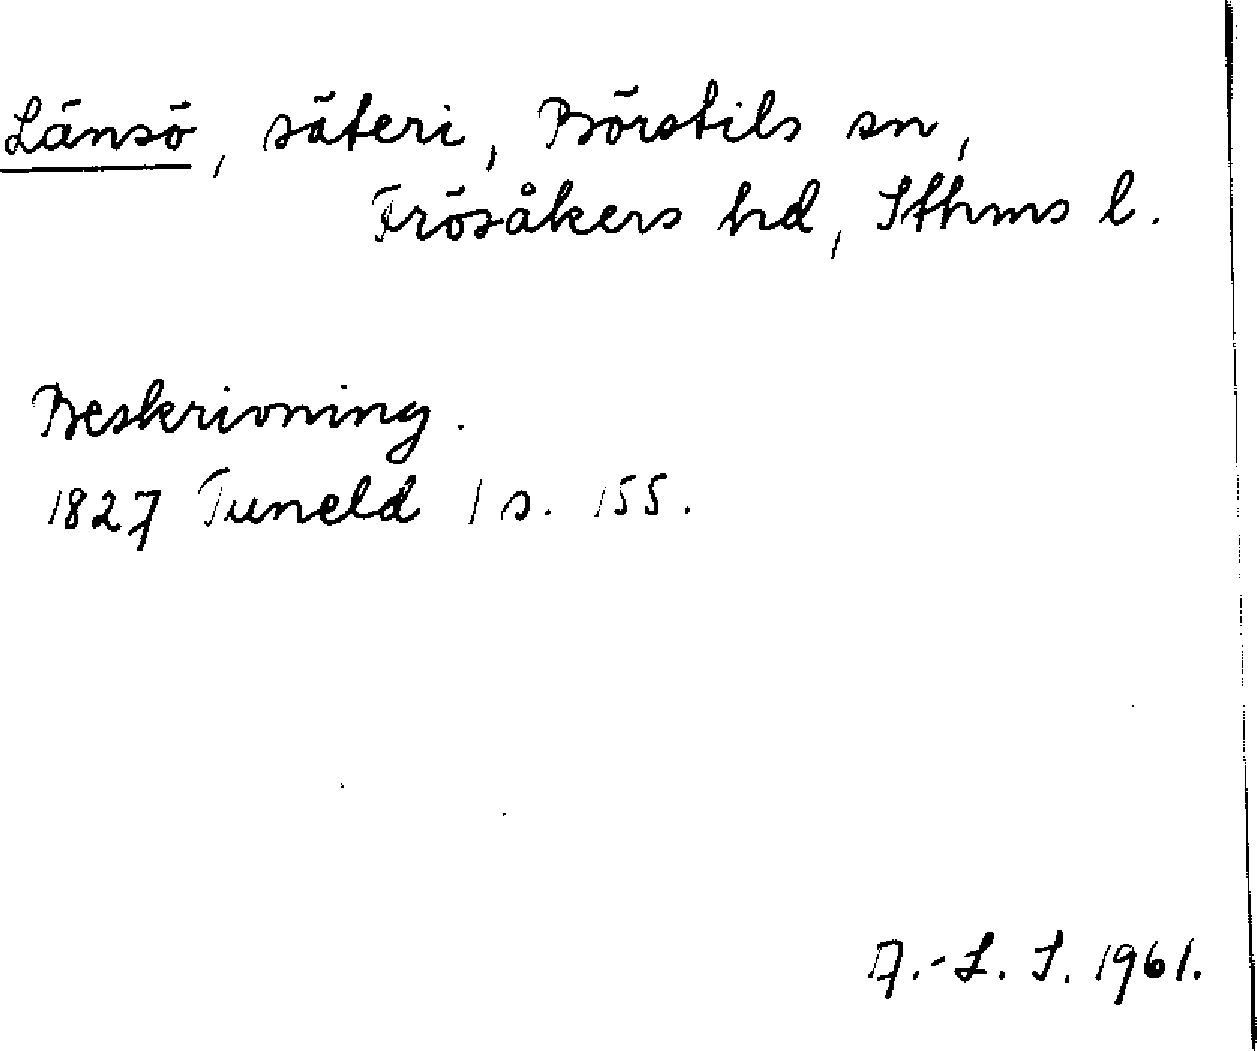 Länsö, säteri, Börstils sn,
Frösåkers hd, Sthms l.
Beskrivning.
1827 Tuneld 1 s. 155.
A.-L. S. 1961.